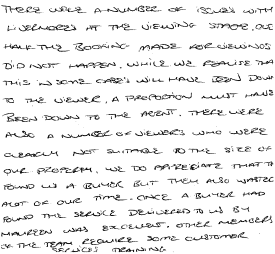 THERE WERE A NUMBER OF ISSUES WITH
LIVERMORES AT THE VIEWING STAGE, OVER
HALF THE BOOKING MADE FOR VIEWINGS
DID NOT HAPPEN, WHILE WE REALISE THAT
THIS IN SOME CASES WILL HAVE BEEN DOWN
TO THE VIEWER, A PROPORTION MUST HAVE
BEEN DOWN TO THE AGENT. THERE WERE
ALSO A NUMBER OF VIEWERS WHO WERE
CLEARLY NOT SUITABLE TO THE SIZE OF
OUR PROPERTY. WE DO APPRECIATE THAT TH
FOUND US A BUYER BUT THEY ALSO WASTED
ALOT OF OUR TIME. ONCE A BUYER HAD
FOUND THE SERVICE DELIVERED TO US BY
MAUREEN WAS EXCELLENT, OTHER MEMBERS
OF THE TEAM REQUIRE SOME CUSTOMER
SERVICES TRAINING.